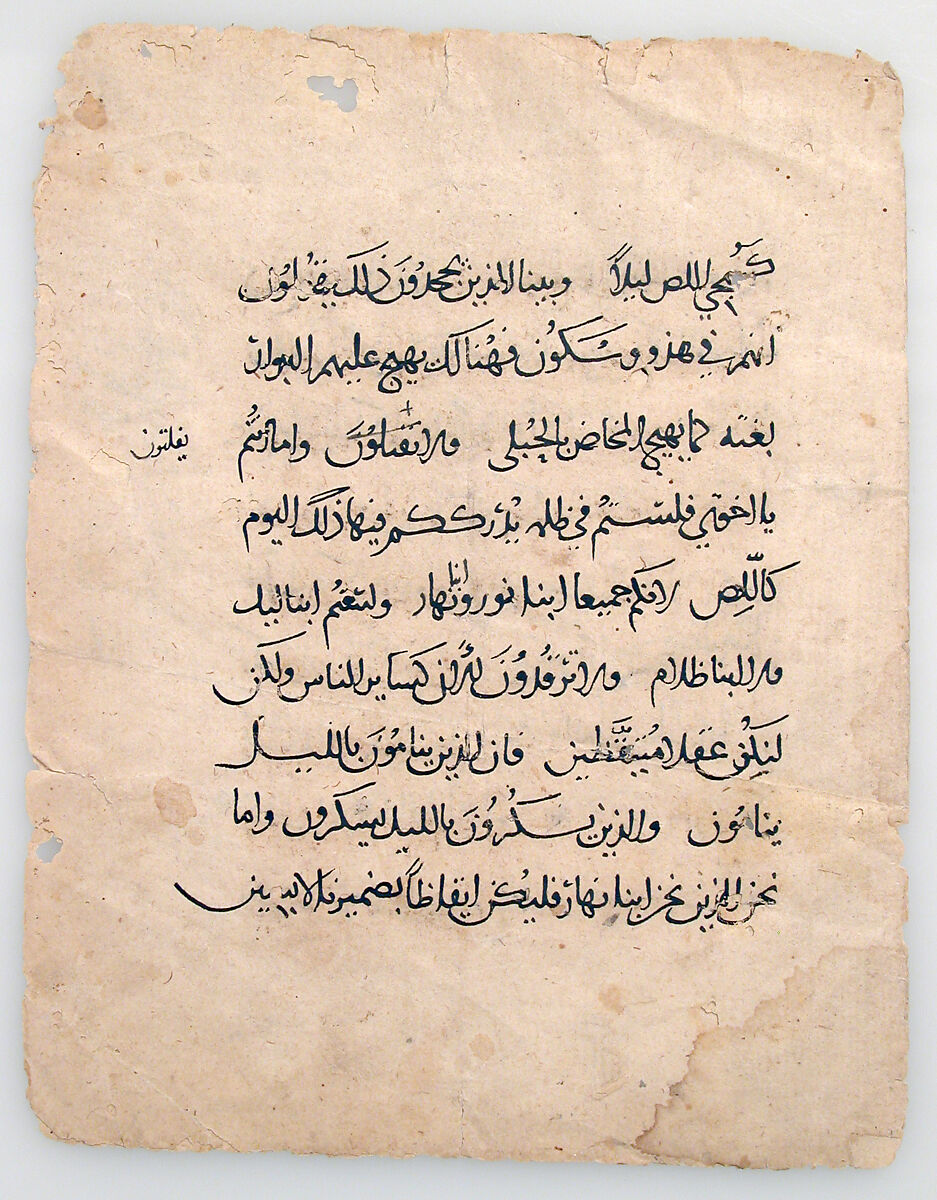 كمجي اللص ليلاً وبينا الذين يجحدون ذلك يقولون
انهم في هدو وسكون فهنالك يهيج عليهم البوار
بغته كما يهيج المخاض بالحبلى ولا يفلتون واما انتم
يفلتون
يا اخوتي فلستم في ظلمه يدرككم فيها ذلك اليوم
كاللص لانكم جميعا ابنا نور وابنا نهار ولستم ابنا ليل
ولا ابنا ظلام ولا ترقدون الان كساير الناس ولكن
لنكن عقلا متيقظين فان الذين ينامون بالليل
ينامون والذين يسكرون بالليل يسكرون واما
نحن الذين نحن ابنا نهار فلنكن ايقاظاً بضميرنا لابسين